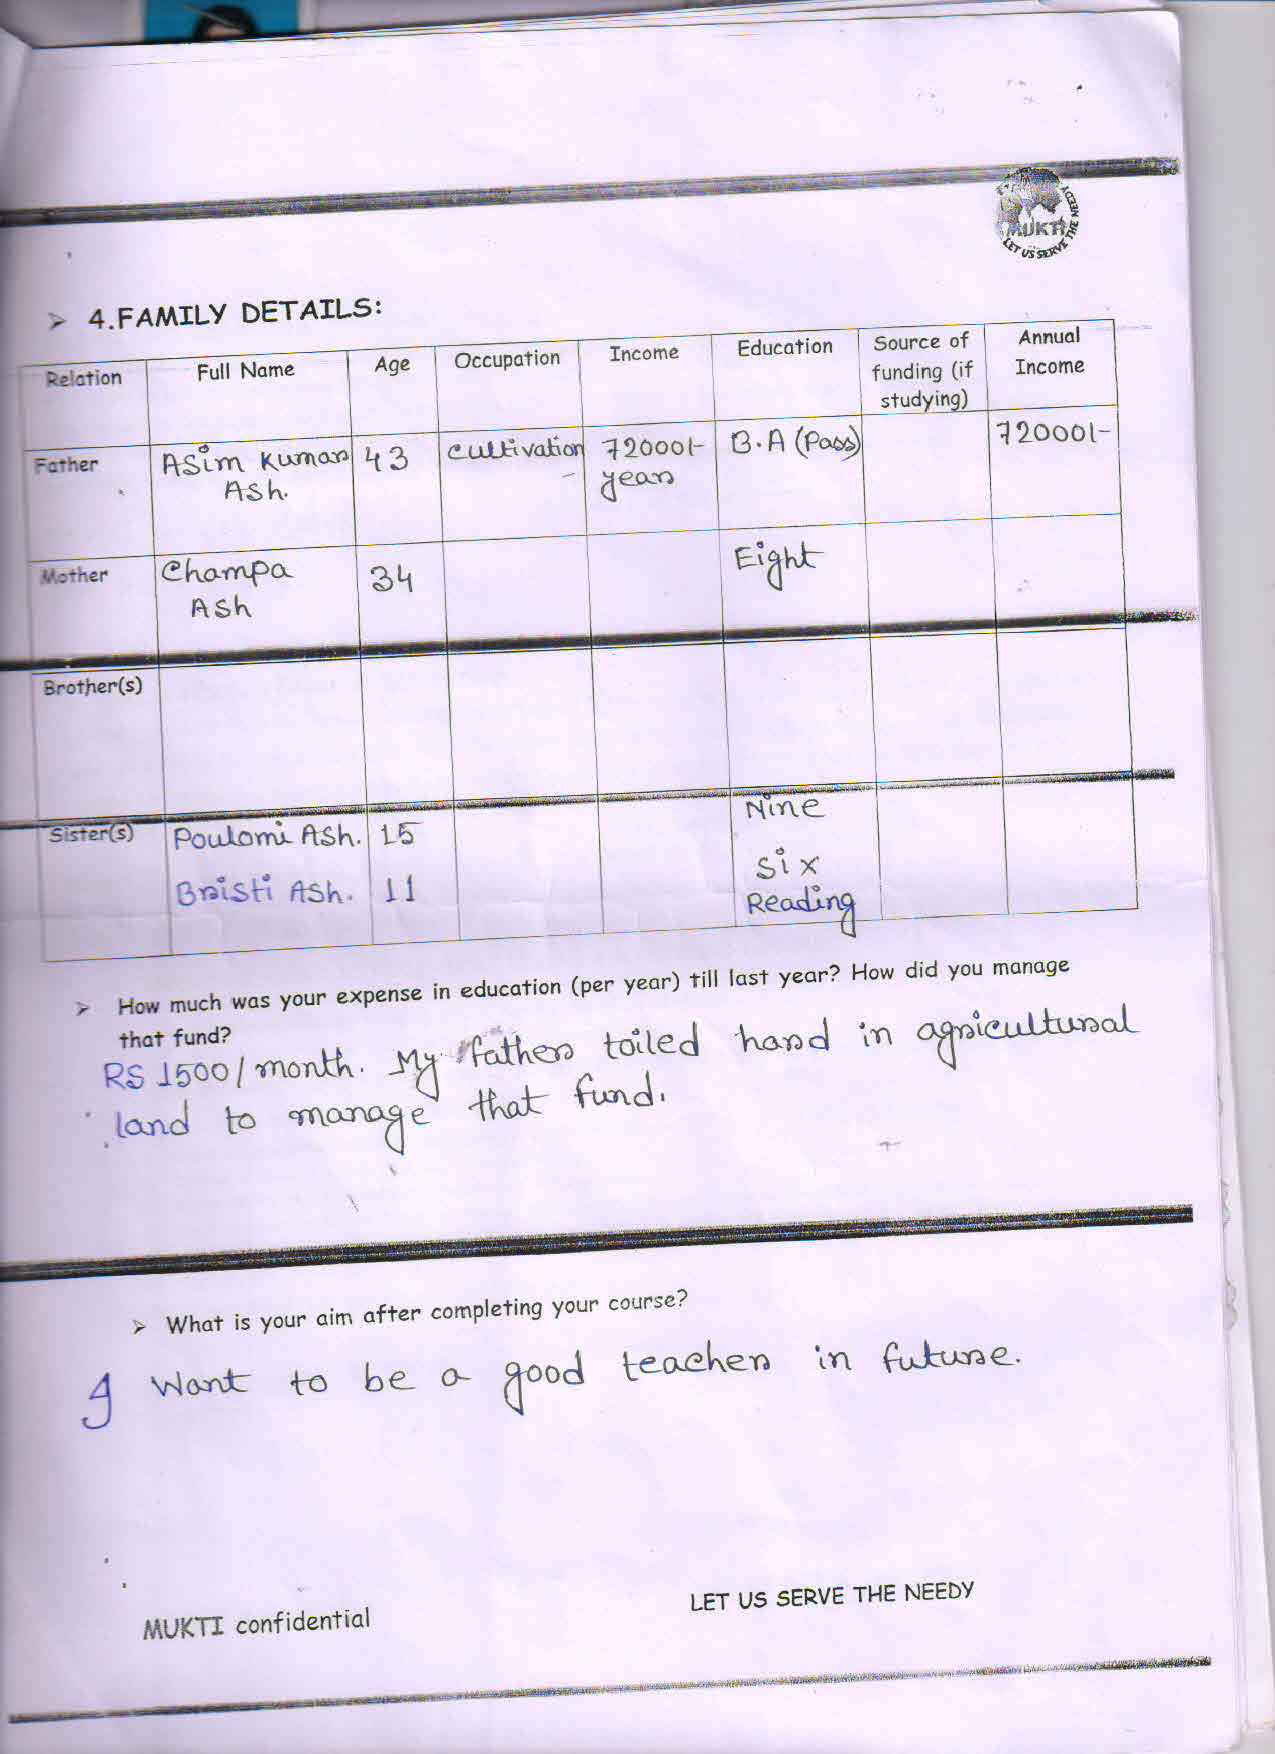 MUKTI
LET US SERVE THE NEEDY
➢ 4.FAMILY DETAILS:
Relation Full Name Age Occupation Income Education Source of funding (if studying) Annual Income
Father Asim Kumar Ash. 43 Cultivation 72000/- year B.A (Pass) 72000/-
Mother Champa Ash 34 Eight
Brother(s)
Sister(s) Poulomi Ash. 15 Nine
Bristi Ash. 11 Six
Reading
➢ How much was your expense in education (per year) till last year? How did you manage
that fund?
RS 1500/month. My father toiled hard in agricultural
land to manage that fund.
➢ What is your aim after completing your course?
I want to be a good teacher in future.
MUKTI confidential LET US SERVE THE NEEDY